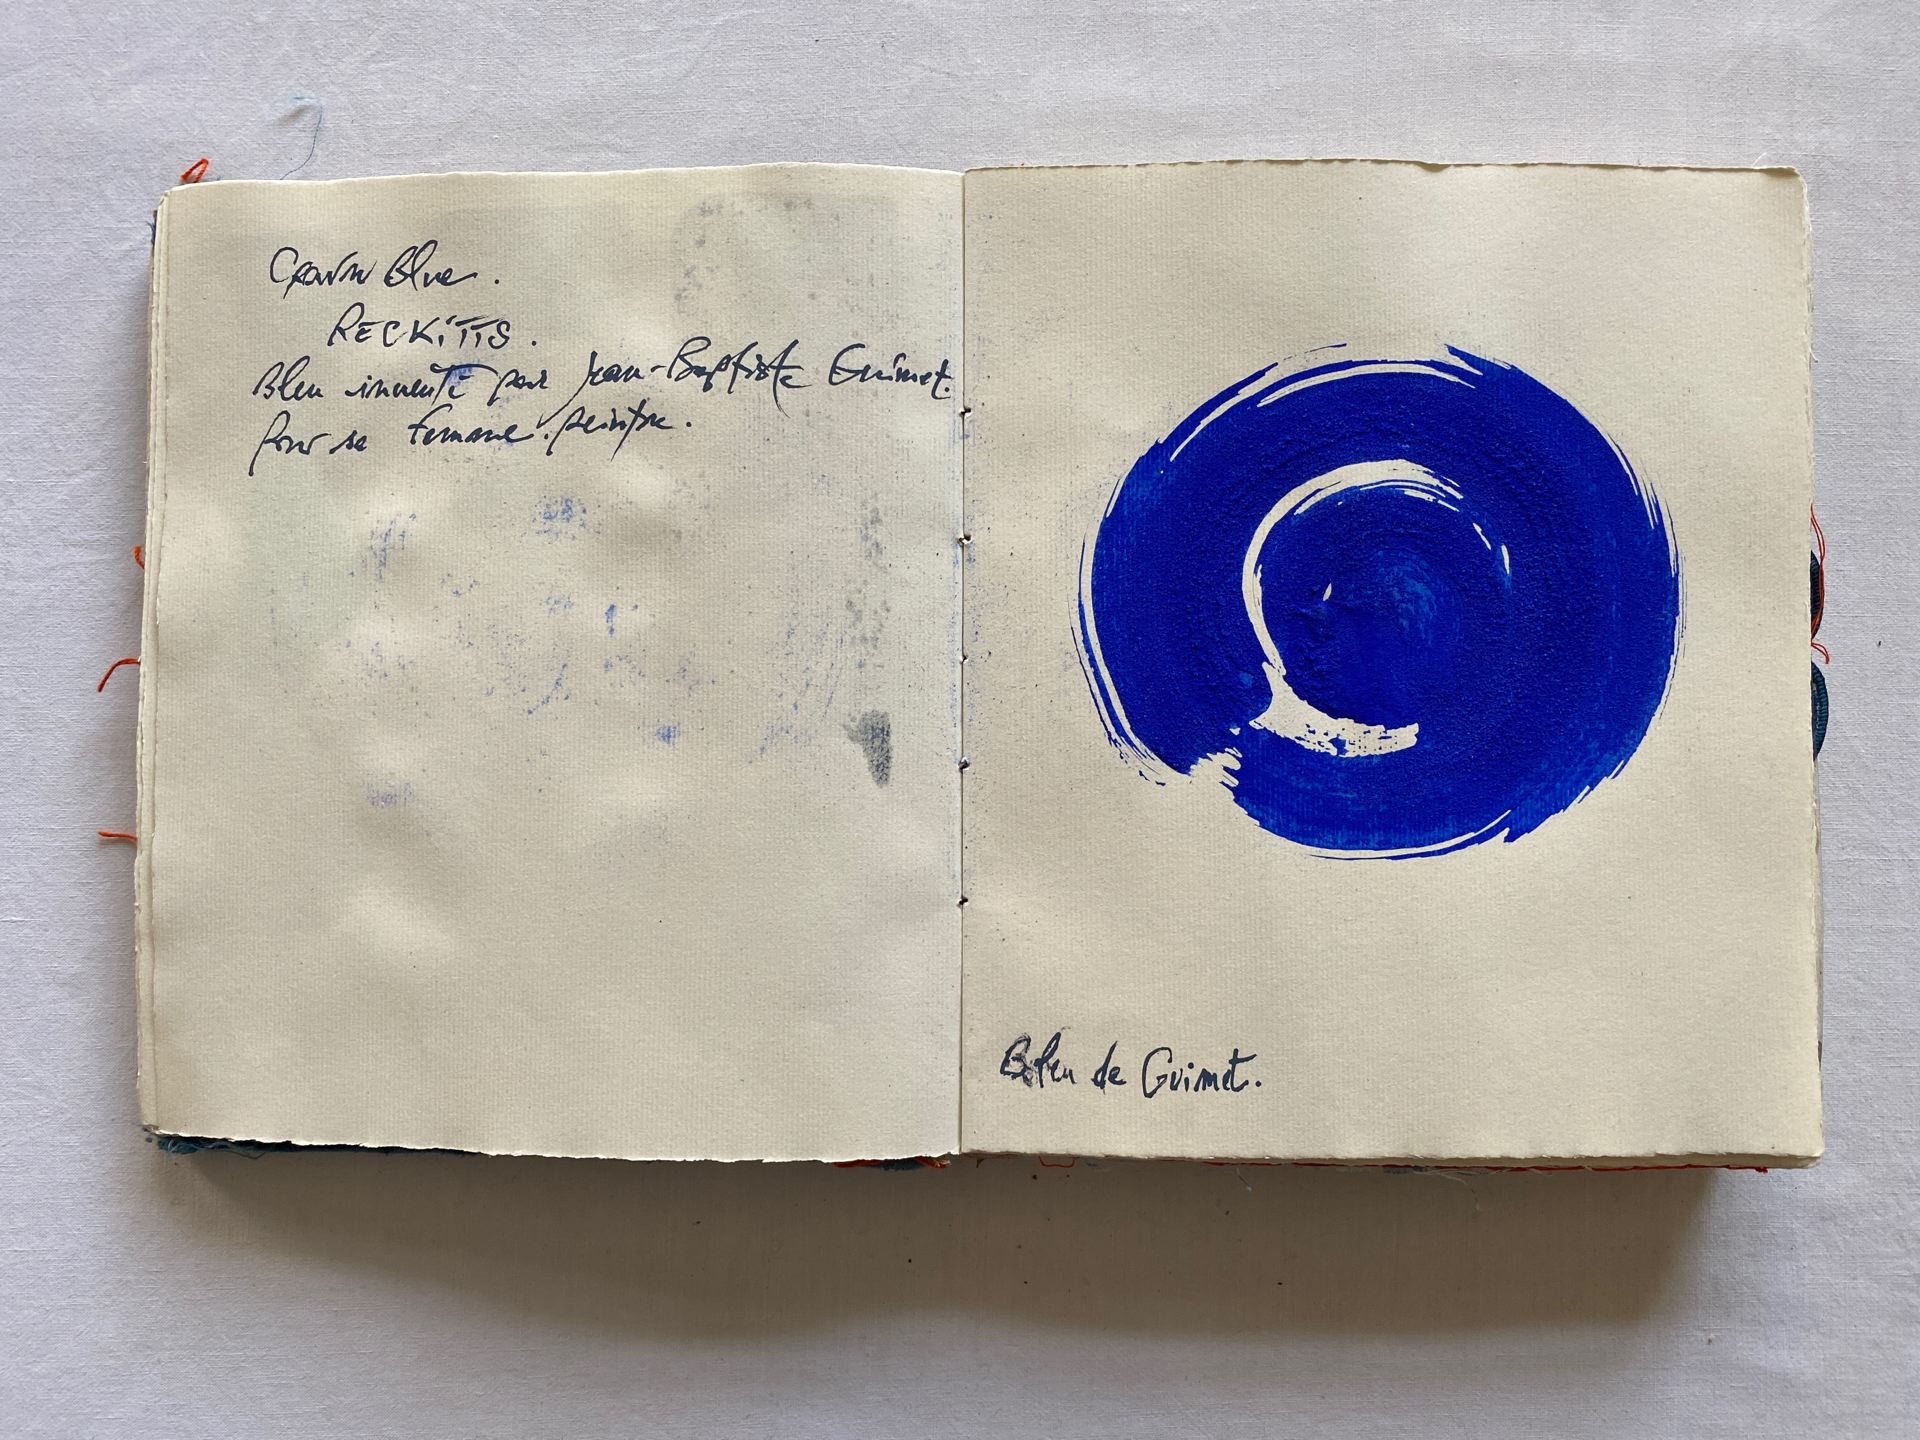 Crown Blue.
RECKITTS.
Bleu inventé par Jean-Baptiste Guimet.
pour sa femme peintre.
Bleu de Guimet.